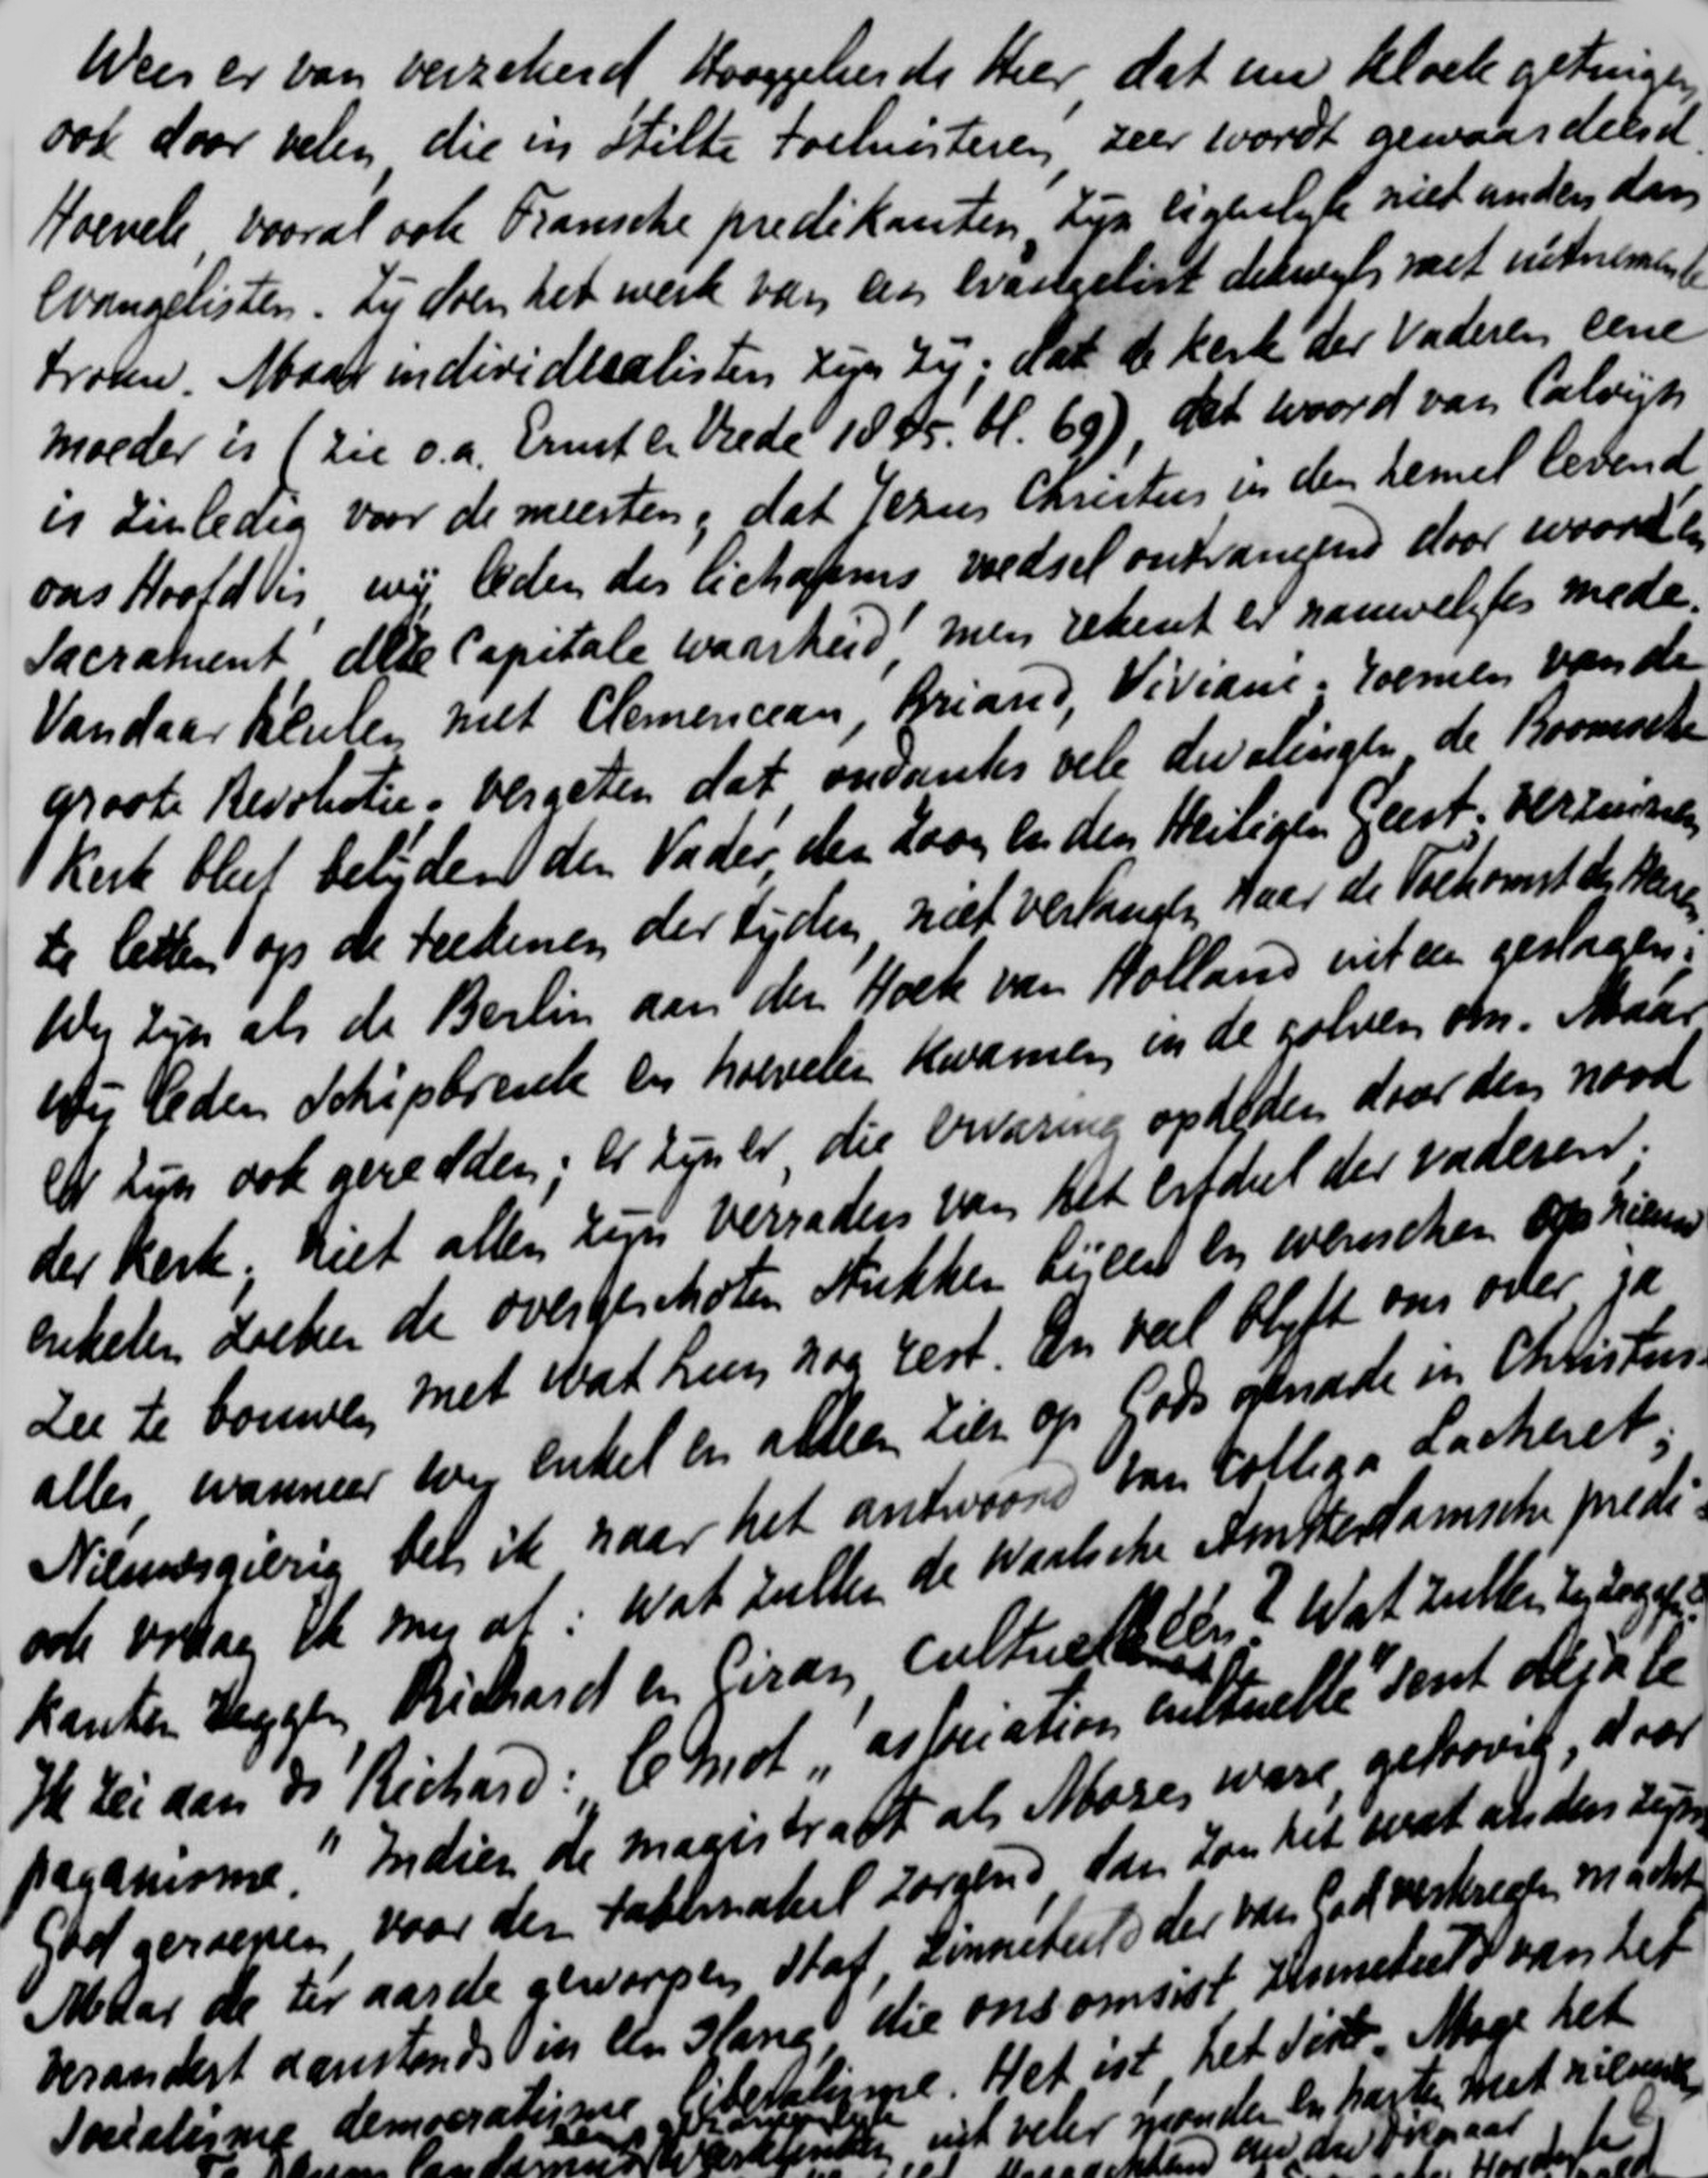 Wees er van verzekerd Hooggeleerde Heer, dat uw kloek getuigen
ook door velen, die in stilte toeluisteren, zeer wordt gewaardeerd.
Hoevele, vooral ook Fransche predikanten, zyn eigenlyk niet anders dan
Evangelisten. Zy doen het werk van een Evangelist dikwyls met uitnemende
trouw. Maar individualisten zyn zy; dat de kerk der Vaderen eene
moeder is (zie o.a. Ernst en Vrede bl. 69), dat woord van Calvijn
is zinledig voor de meesten; dat Jezus Christus in den hemel levend
ons Hoofd is, wij leden des lichaams voedsel ontvangend door woord en
Sacrament, deze Capitale waarheid, men rekent er nauwelyks mede.
Vandaar heulen met Clemenceau, Briand, Viviani; roemen van de
groote Revolutie; vergeten dat ondanks vele dwalingen de Roomsche
Kerk bleef belyden den Vader, den Zoon en den Heiligen Geest; verzuimen
te letten op de teekenen der tyden, niet verlangen naar de Toekomst des Heeren
Wy zyn als de Berlin aan den Hoek van Holland uit een geslagen;
Wy leden Schipbreuk en hoevelen kwamen in de golven om. Maar
er zyn ook geredden; er zyn er, die ervaring opdeden door den nood
der Kerk; niet allen zyn verraders van het erfdeel der vaderen;
enkelen zoeken de overgeschoten stukken byeen en wenschen op nieuw
zee te bouwen met wat hun nog rest. En veel blyft ons over, ja
alles, wanneer wy enkel en alleen zien op Gods genade in Christus.
Nieuwsgierig ben ik naar het antwoord van Collega Lacheret;
ook vraag ik my af: wat zullen de Waalsche Amsterdamsche predi-
kanten zeggen, Richard en Giran? Wat zullen zy zeggen?
Ik zei aan Ds Richard: "le mot "association cultuelle" sent déjà le
paganisme." Indien de magistraat als Mozes ware geloovig, door
God geroepen, voor den tabernakel zorgend, dan zou het wat anders zyn.
Maar de ter aarde geworpen staf, zinnebeeld der van God verkregen macht
verandert aanstonds in een slang, die ons omsist, zinnebeeld van het
Socialisme, democratisme, liberalisme. Het sist, het sist. Moge het
uit veler monden en harten met nieuwe